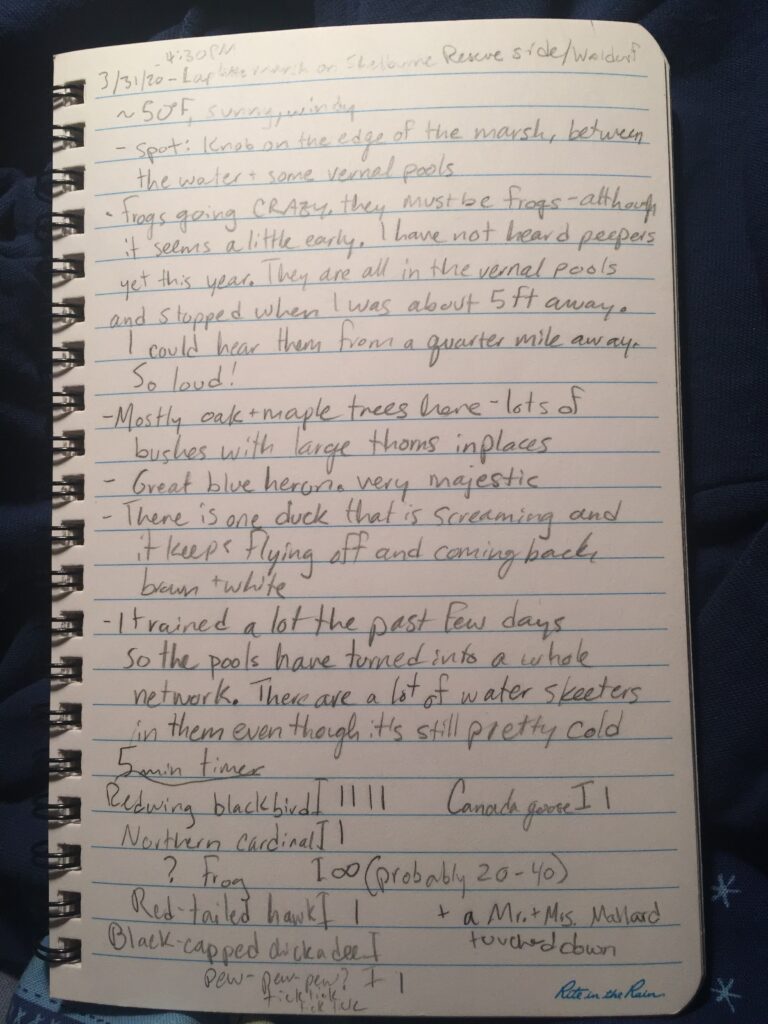 4:30PM
3/31/20 - marsh on Shelburne Reserve side/Waldorf
~50°F, sunny, windy
- spot: Knob on the edge of the marsh, between
the water + some vernal pools
• frogs going CRAZY. they must be frogs - although
it seems a little early. I have not heard peepers
yet this year. They are all in the vernal pools
and stopped when I was about 5 ft away.
I could hear them from a quarter mile away.
So loud!
- Mostly oak + maple trees here - lots of
bushes with large thorns in places
- Great blue heron. very majestic
- There is one duck that is screaming and
it keeps flying off and coming back,
brown + white
- It rained a lot the past few days
so the pools have turned into a whole
network. There are a lot of water skeeters
in them even though it's still pretty cold
5 min timer
Redwing blackbird I IIII Canada goose I I
Northern cardinal I I
? frog I ∞ (probably 20-40)
Red-tailed hawk I I + a Mr. + Mrs. Mallard
Black-capped chickadee I touched down
pew-pew-pew? I I
tick tick
tick
Rite in the Rain